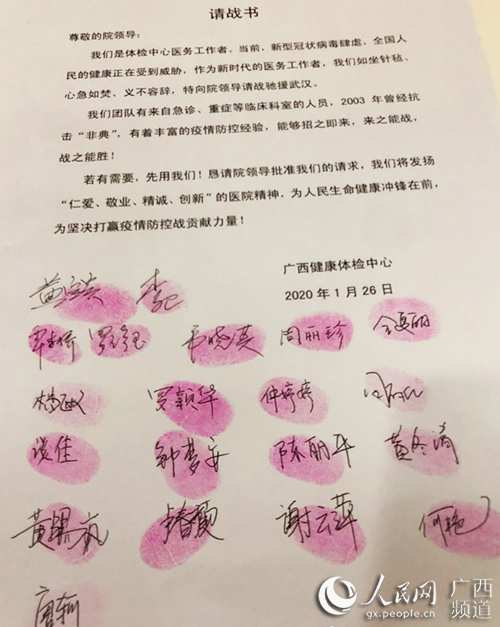 请战书
尊敬的院领导：
我们是体检中心医务工作者。当前，新型冠状病毒肆虐，全国人
民的健康正在受到威胁，作为新时代的医务工作者，我们如坐针毡、
心急如焚、义不容辞，特向院领导请战驰援武汉。
我们团队有来自急诊、重症等临床科室的人员，2003 年曾经抗
击“非典”，有着丰富的疫情防控经验，能够招之即来，来之能战，
战之能胜！
若有需要，先用我们！恳请院领导批准我们的请求，我们将发扬
“仁爱、敬业、精诚、创新”的医院精神，为人民生命健康冲锋在前，
为坚决打赢疫情防控战贡献力量！
广西健康体检中心
2020 年 1 月 26 日
韦晓英 周丽珍
罗颖华 仲婷婷
谈佳 钟梦安 陈丽华
谢云萍 何艳
人民网 广西频道
gx.people.cn